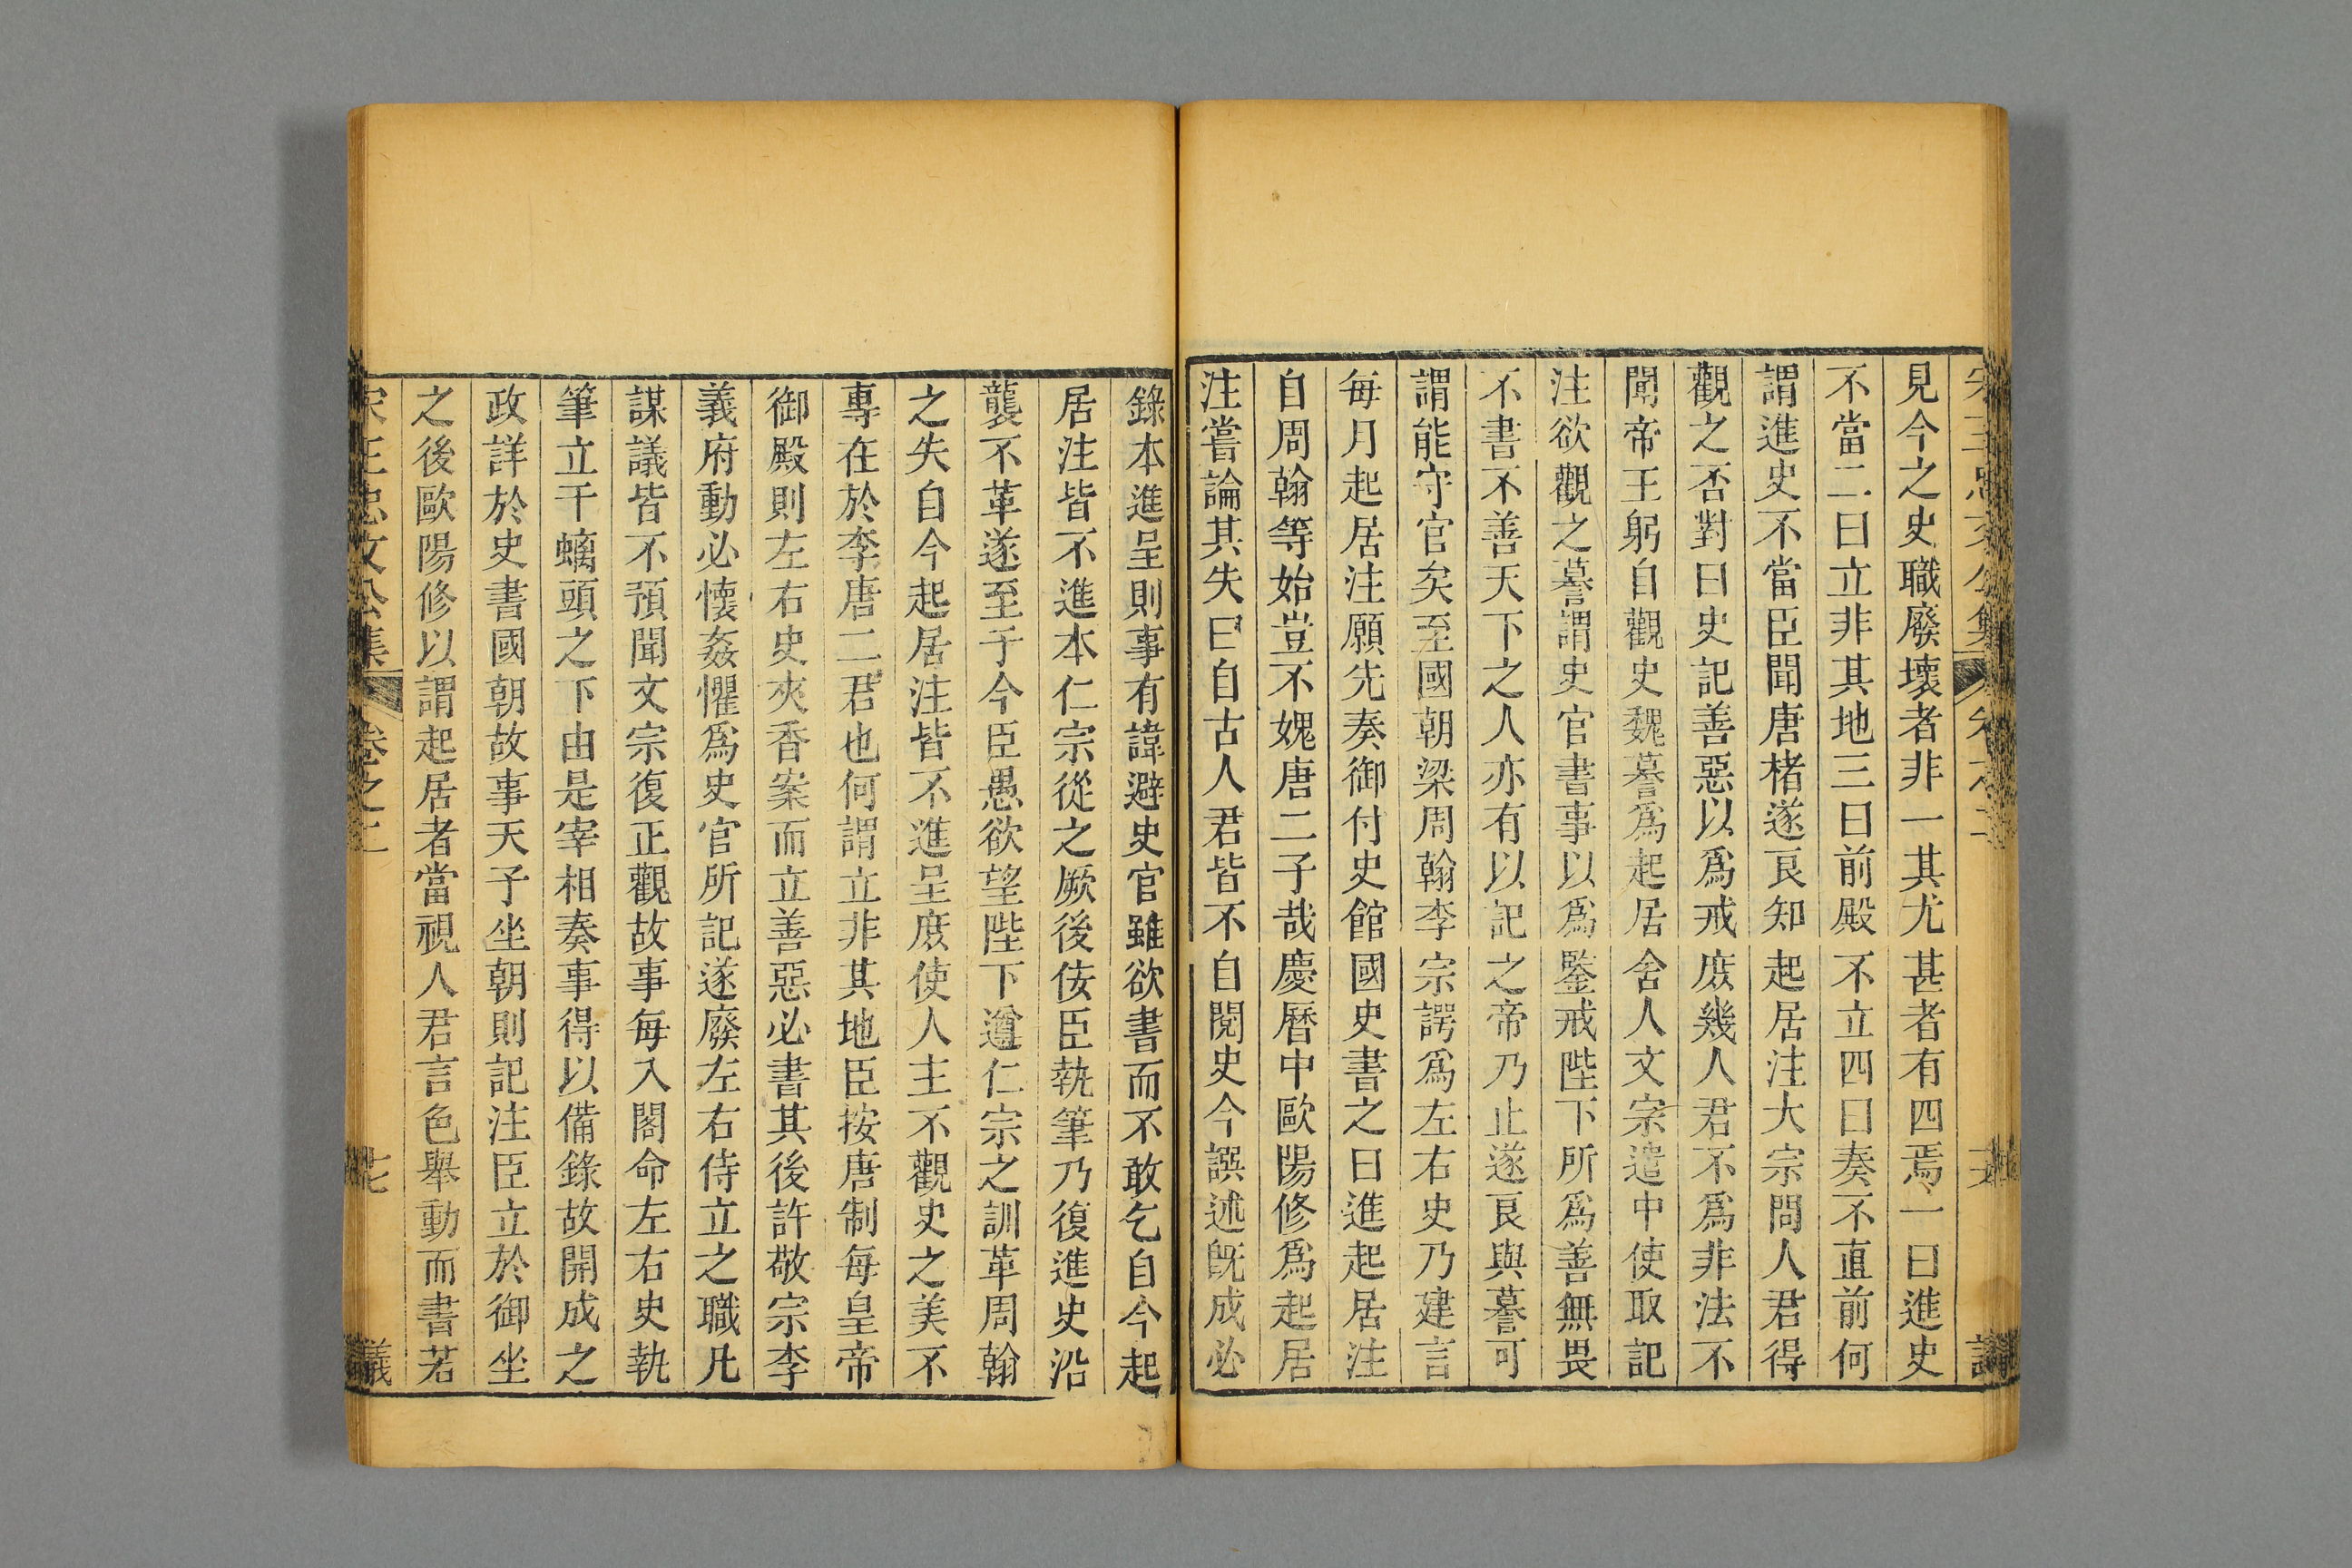 見今之史職廢壞者非一其尤甚者有四焉一曰進史
不當二曰立非其地三曰前殿不立四曰奏不直前何
謂進史不當臣聞唐楮遂良知起居注大宗問人君得
觀之否對曰史記善惡以爲戒庶幾人君不爲非法不
聞帝王躬自觀史魏謩爲起居舍人文宗遣中使取記
注欲觀之謩謂史官書事以爲鑒戒陛下所爲善無畏
不書不善天下之人亦有以記之帝乃止遂良與謩可
謂能守官矣至國朝梁周翰李宗諤爲左右史乃建言
每月起居注願先奏御付史館國史書之曰進起居注
自周翰等始豈不媿唐二子哉慶曆中歐陽修爲起居
注嘗論其失曰自古人君皆不自閱史今譔述旣成必
錄本進呈則事有諱避史官雖欲書而不敢乞自今起
居注皆不進本仁宗從之厥後佞臣執筆乃復進史沿
襲不革遂至于今臣愚欲望陛下遵仁宗之訓革周翰
之失自今起居注皆不進呈庶使人主不觀史之美不
專在於李唐二君也何謂立非其地臣按唐制每皇帝
御殿則左右史夾香案而立善惡必書其後許敬宗李
義府動必懷姦懼爲史官所記遂廢左右侍立之職凡
謀議皆不預聞文宗復正觀故事每入閤命左右史執
筆立于螭頭之下由是宰相奏事得以備錄故開成之
政詳於史書國朝故事天子坐朝則記注臣立於御坐
之後歐陽修以謂起居者當視人君言色舉動而書若
宋王忠文公集 卷之二 七 議